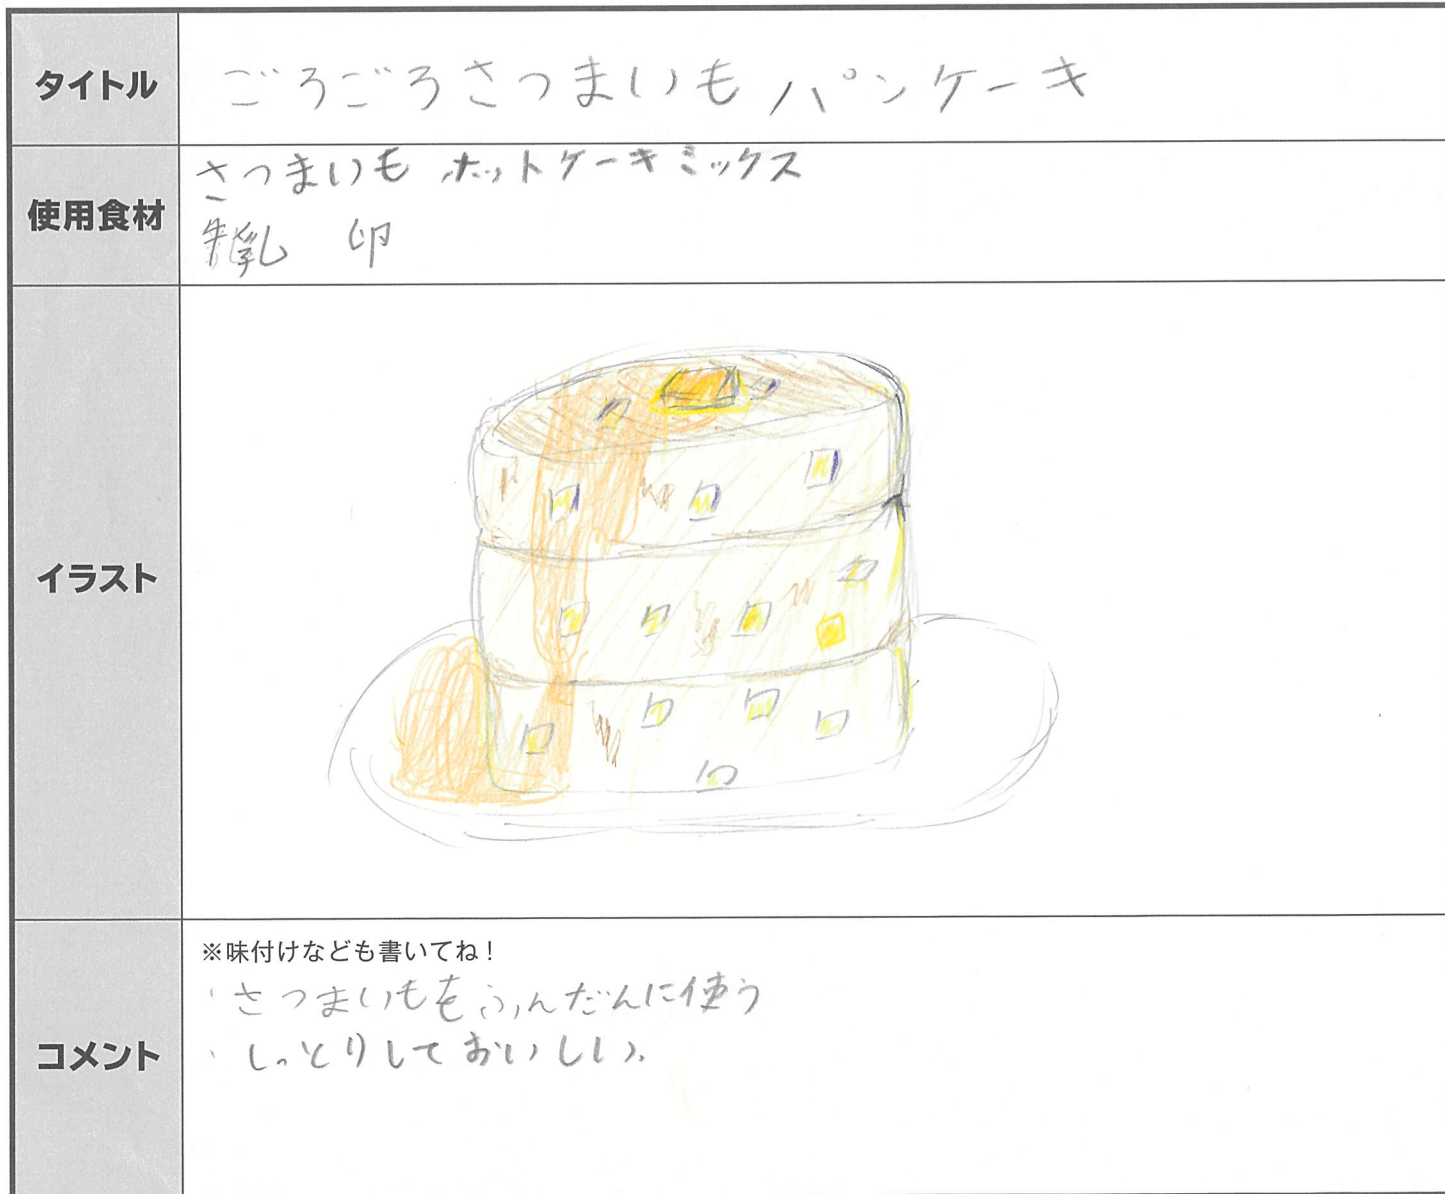 タイトル
ごろごろさつまいもパンケーキ
使用食材
さつまいも ホットケーキミックス
牛乳 卵
イラスト
コメント
※味付けなども書いてね！
・さつまいもをふんだんに使う
・しっとりしておいしい。